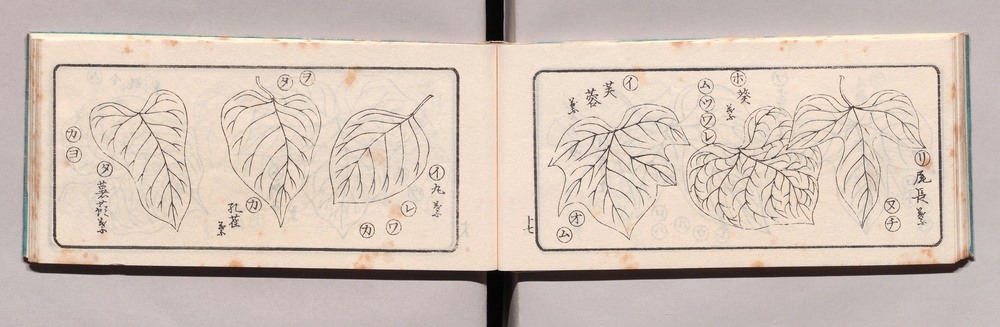 リ 尾長葉
ヌ
チ
ホ 葵葉
ム
ツ
ワ
レ
イ 芙蓉葉
オ
ム
七
イ 丸葉
レ
ワ
カ
ヲ
タ
カ 孔雀葉
タ 葉
カ
ヨ